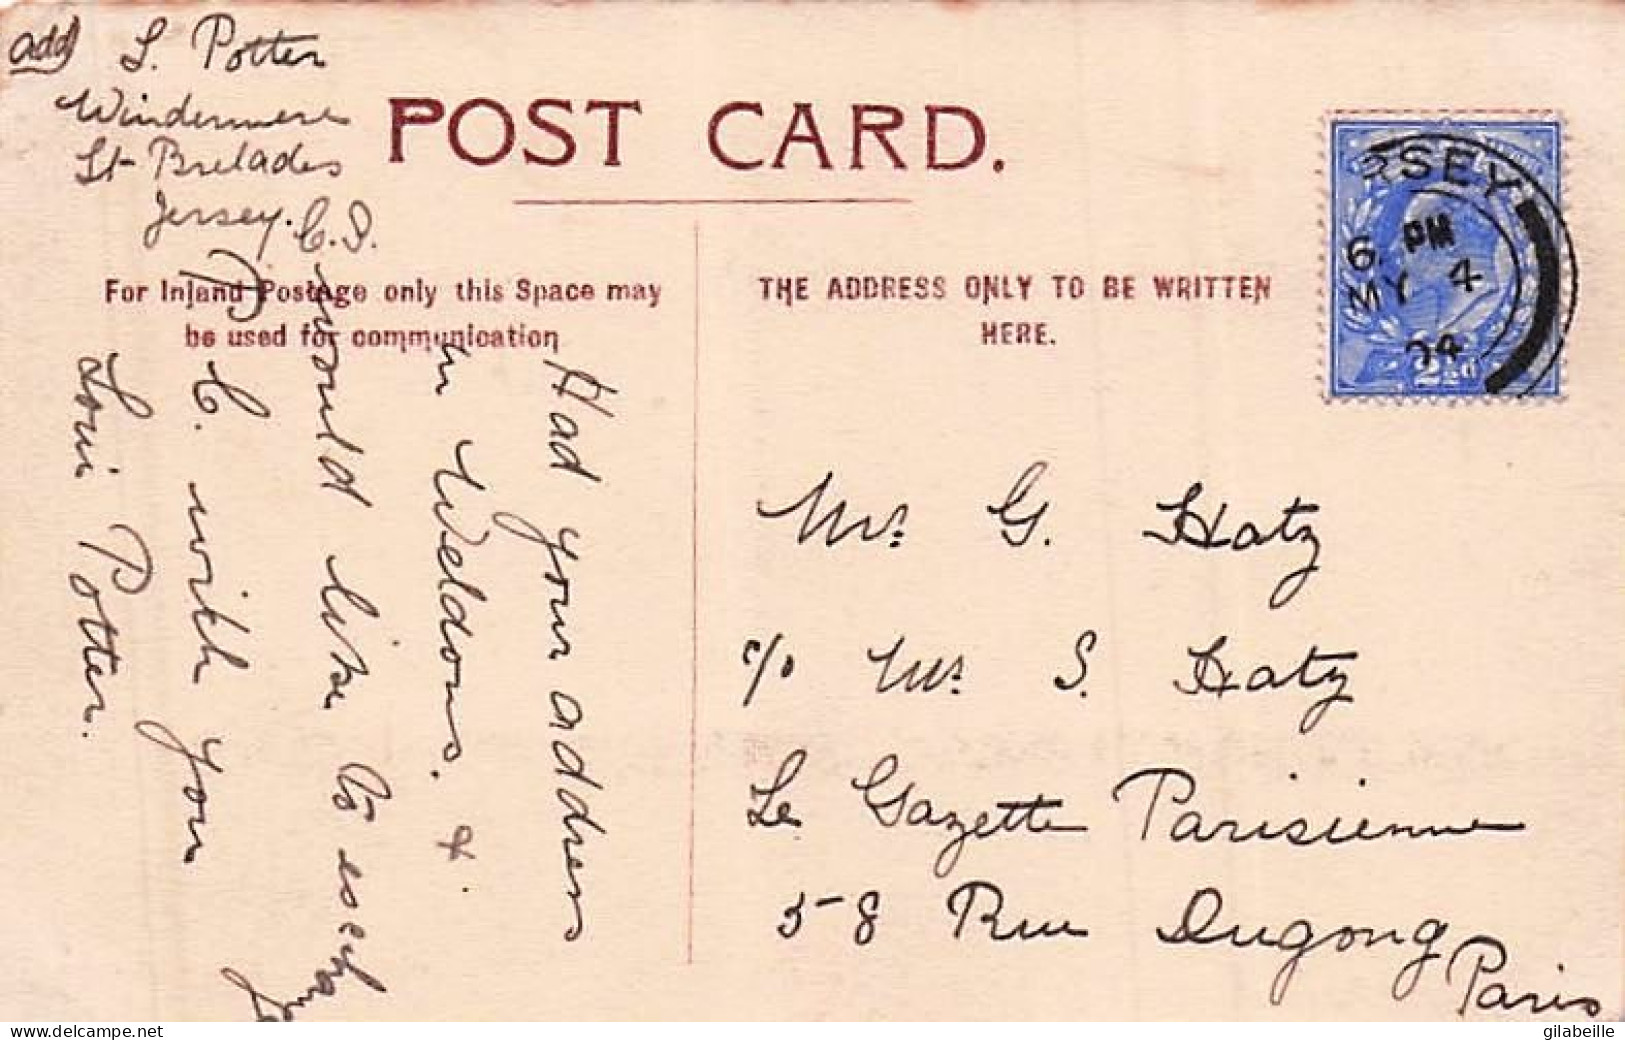 add) L. Potter
Windermere
St Brelades
Jersey. C.I.
POST CARD.
For Inland Postage only this Space may
be used for communication
THE ADDRESS ONLY TO BE WRITTEN
HERE.
RSEY
6 PM
MY 4
04
2½d
Had your address
in Weldons. &
would like to exchange
P. C. with you
Loui Potter.
Mrs G. Hatz
c/o Mrs S. Hatz
Le Gazette Parisienne
58 Rue Dugong
Paris
gilabeille